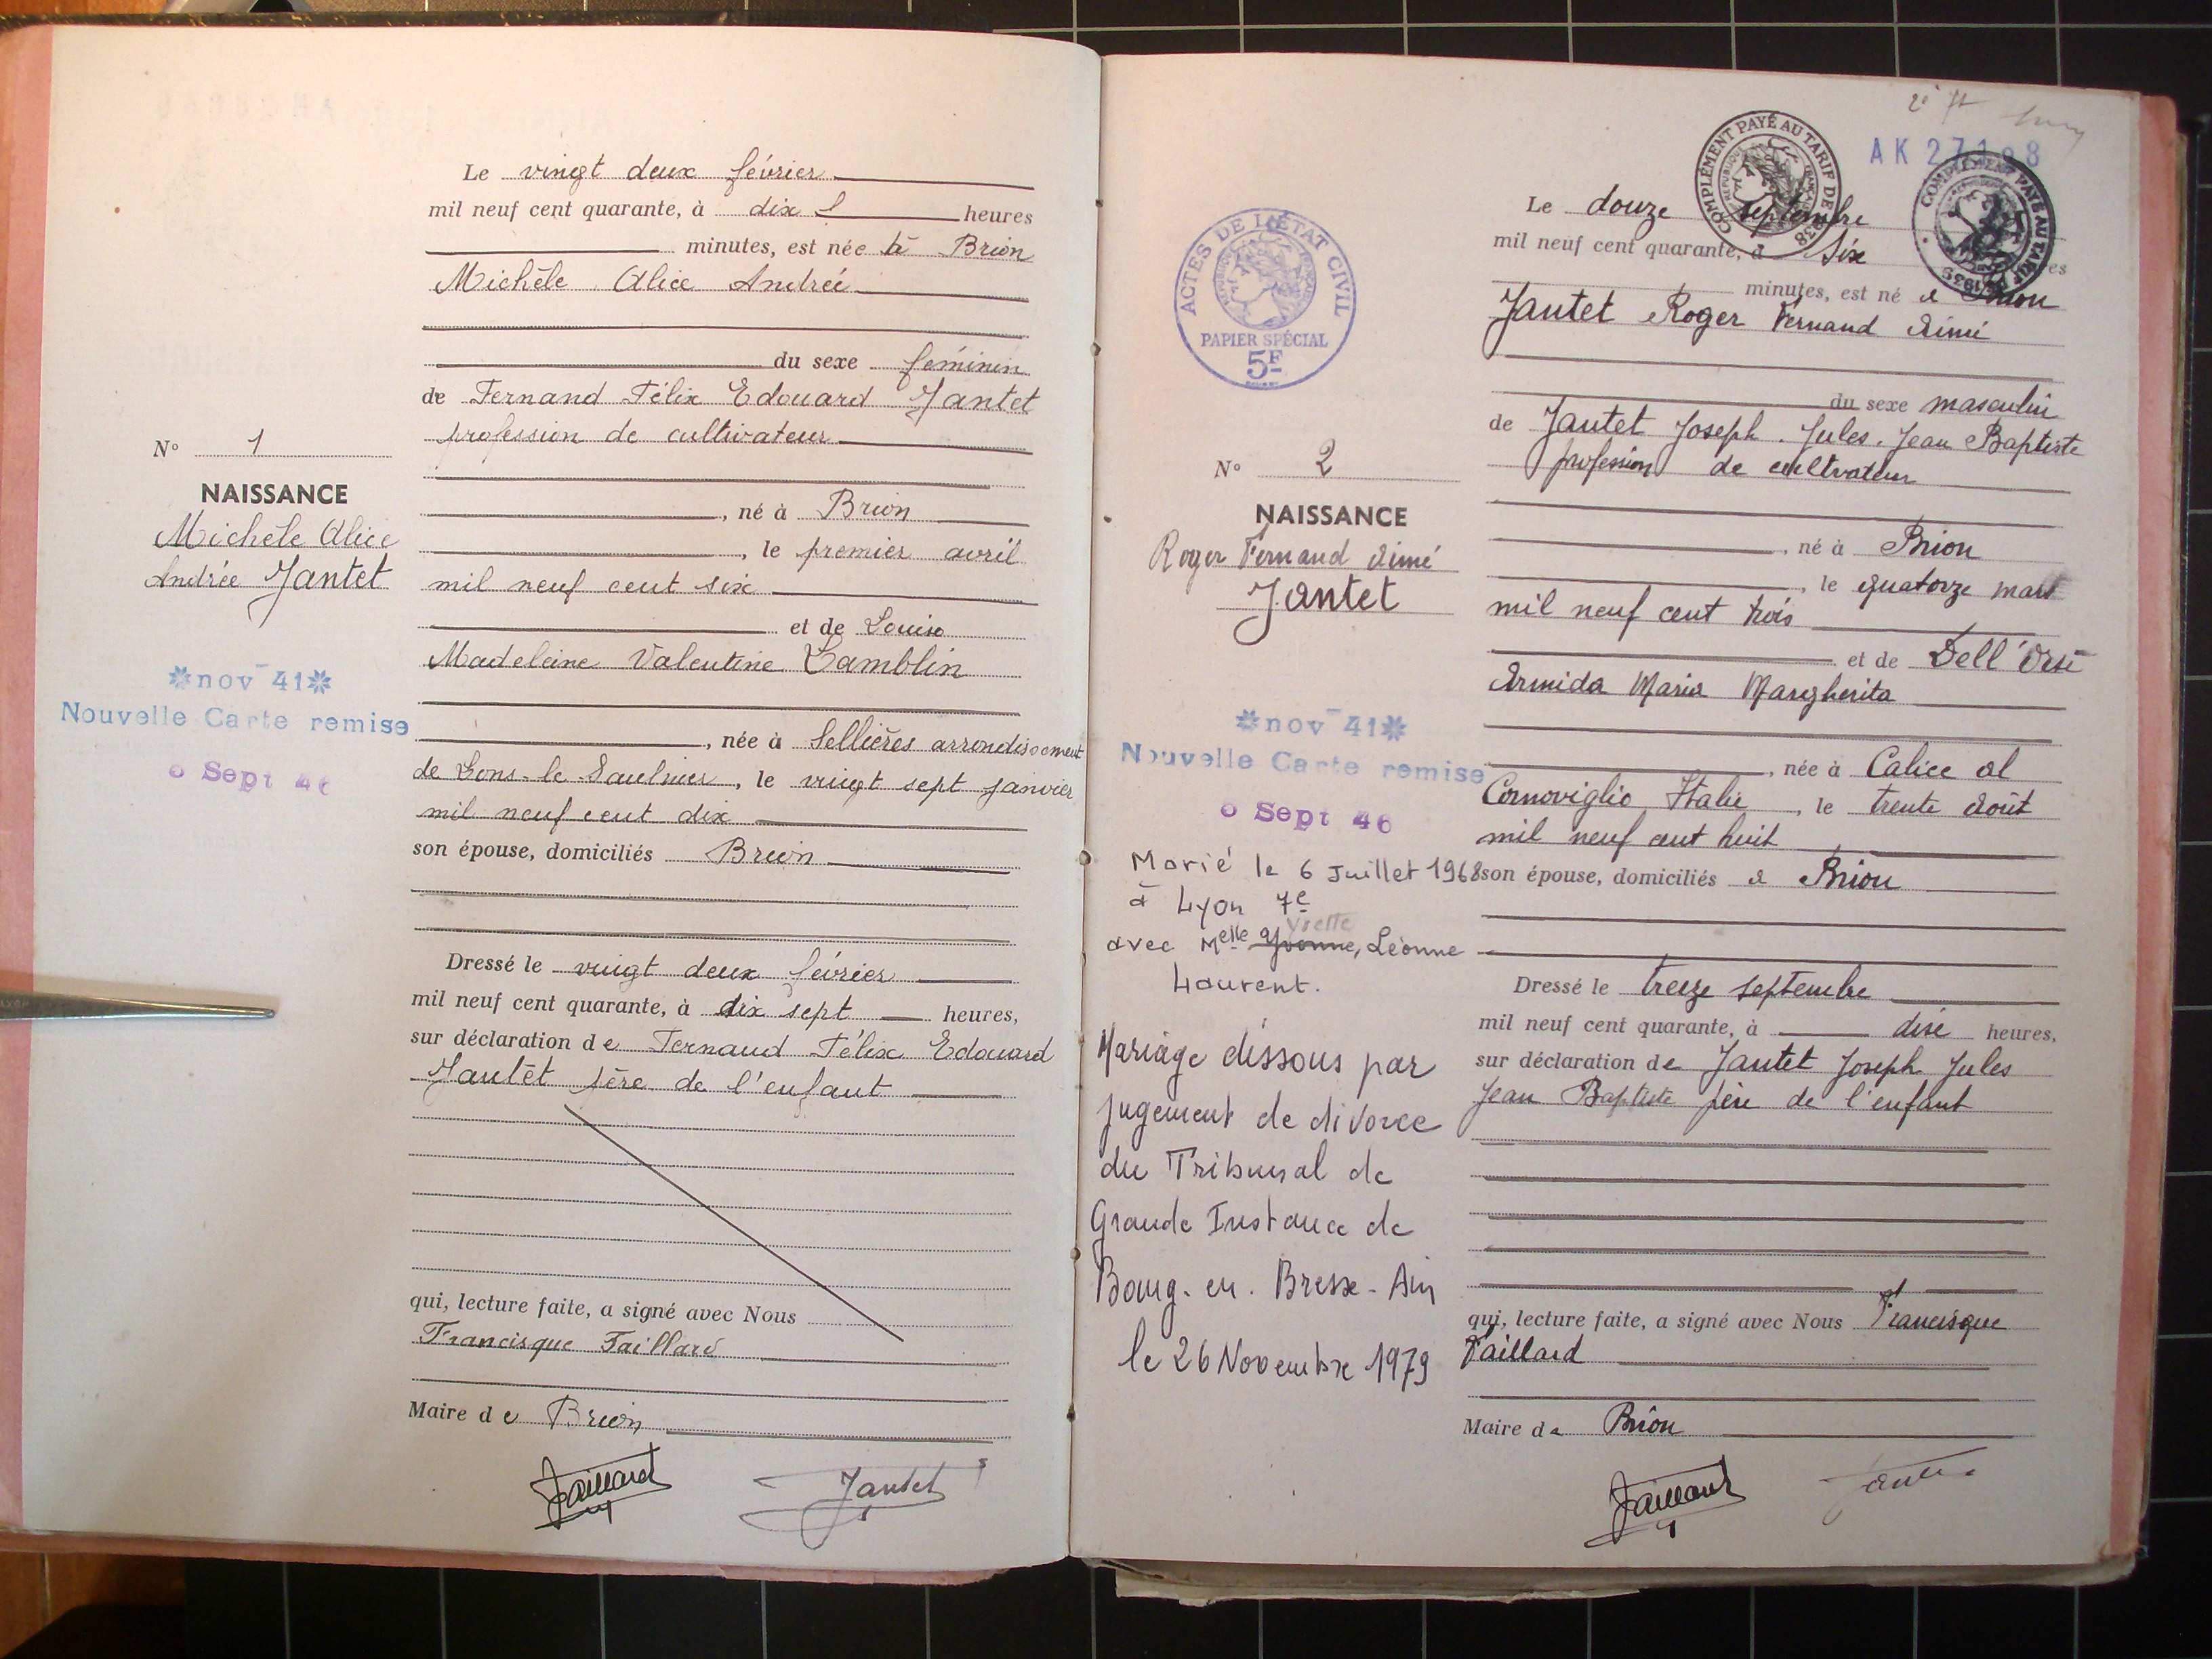 Le vingt deux février
mil neuf cent quarante, à dix heures
minutes, est née à Brion
Michèle Alice Andrée
du sexe féminin
de Fernand Félix Edouard Jantet
profession de cultivateur
N° 1
NAISSANCE
Michèle Alice
Andrée Jantet
, né à Brion
, le premier avril
mil neuf cent six
et de Louise
Madeleine Valentine Lamblin
*nov 41*
Nouvelle Carte remise
Sept 46
, née à Sellières arrondissement
de Lons-le Saulnier, le vingt sept janvier
mil neuf cent dix
son épouse, domiciliés Brion
Dressé le vingt deux février
mil neuf cent quarante, à dix sept heures,
sur déclaration de Fernand Félix Edouard
Jantet père de l'enfant
qui, lecture faite, a signé avec Nous
Francisque Faillard
Maire de Brion
Faillard
Jantet
AK
COMPLÉMENT PAYÉ AU TARIF DE 1938
COMPLÉMENT PAYÉ AU TARIF DE 1938
ACTES DE L'ÉTAT CIVIL
PAPIER SPÉCIAL
5F
Le douze septembre
mil neuf cent quarante, à Six
minutes, est né à Brion
Jantet Roger Fernand Aimé
du sexe masculin
de Jantet Joseph. Jules. Jean Baptiste
profession de cultivateur
N° 2
NAISSANCE
Roger Fernand Aimé
Jantet
, né à Brion
, le quatorze mars
mil neuf cent trois
et de Dell'Orsi
Armida Maria Margherita
*nov 41*
Nouvelle Carte remise
Sept 46
, née à Calice al
Cornoviglio Italie, le trente Août
mil neuf cent huit
son épouse, domiciliés à Brion
Marié le 6 Juillet 1968
à Lyon 7e
Yvette
avec Melle Yvonne, Léonne
Laurent.
Mariage dissous par
jugement de divorce
du Tribunal de
Grande Instance de
Bourg-en-Bresse-Ain
le 26 Novembre 1979
Dressé le treize septembre
mil neuf cent quarante, à dix heures,
sur déclaration de Jantet Joseph Jules
Jean Baptiste père de l'enfant
qui, lecture faite, a signé avec Nous Francisque
Faillard
Maire de Brion
Faillard